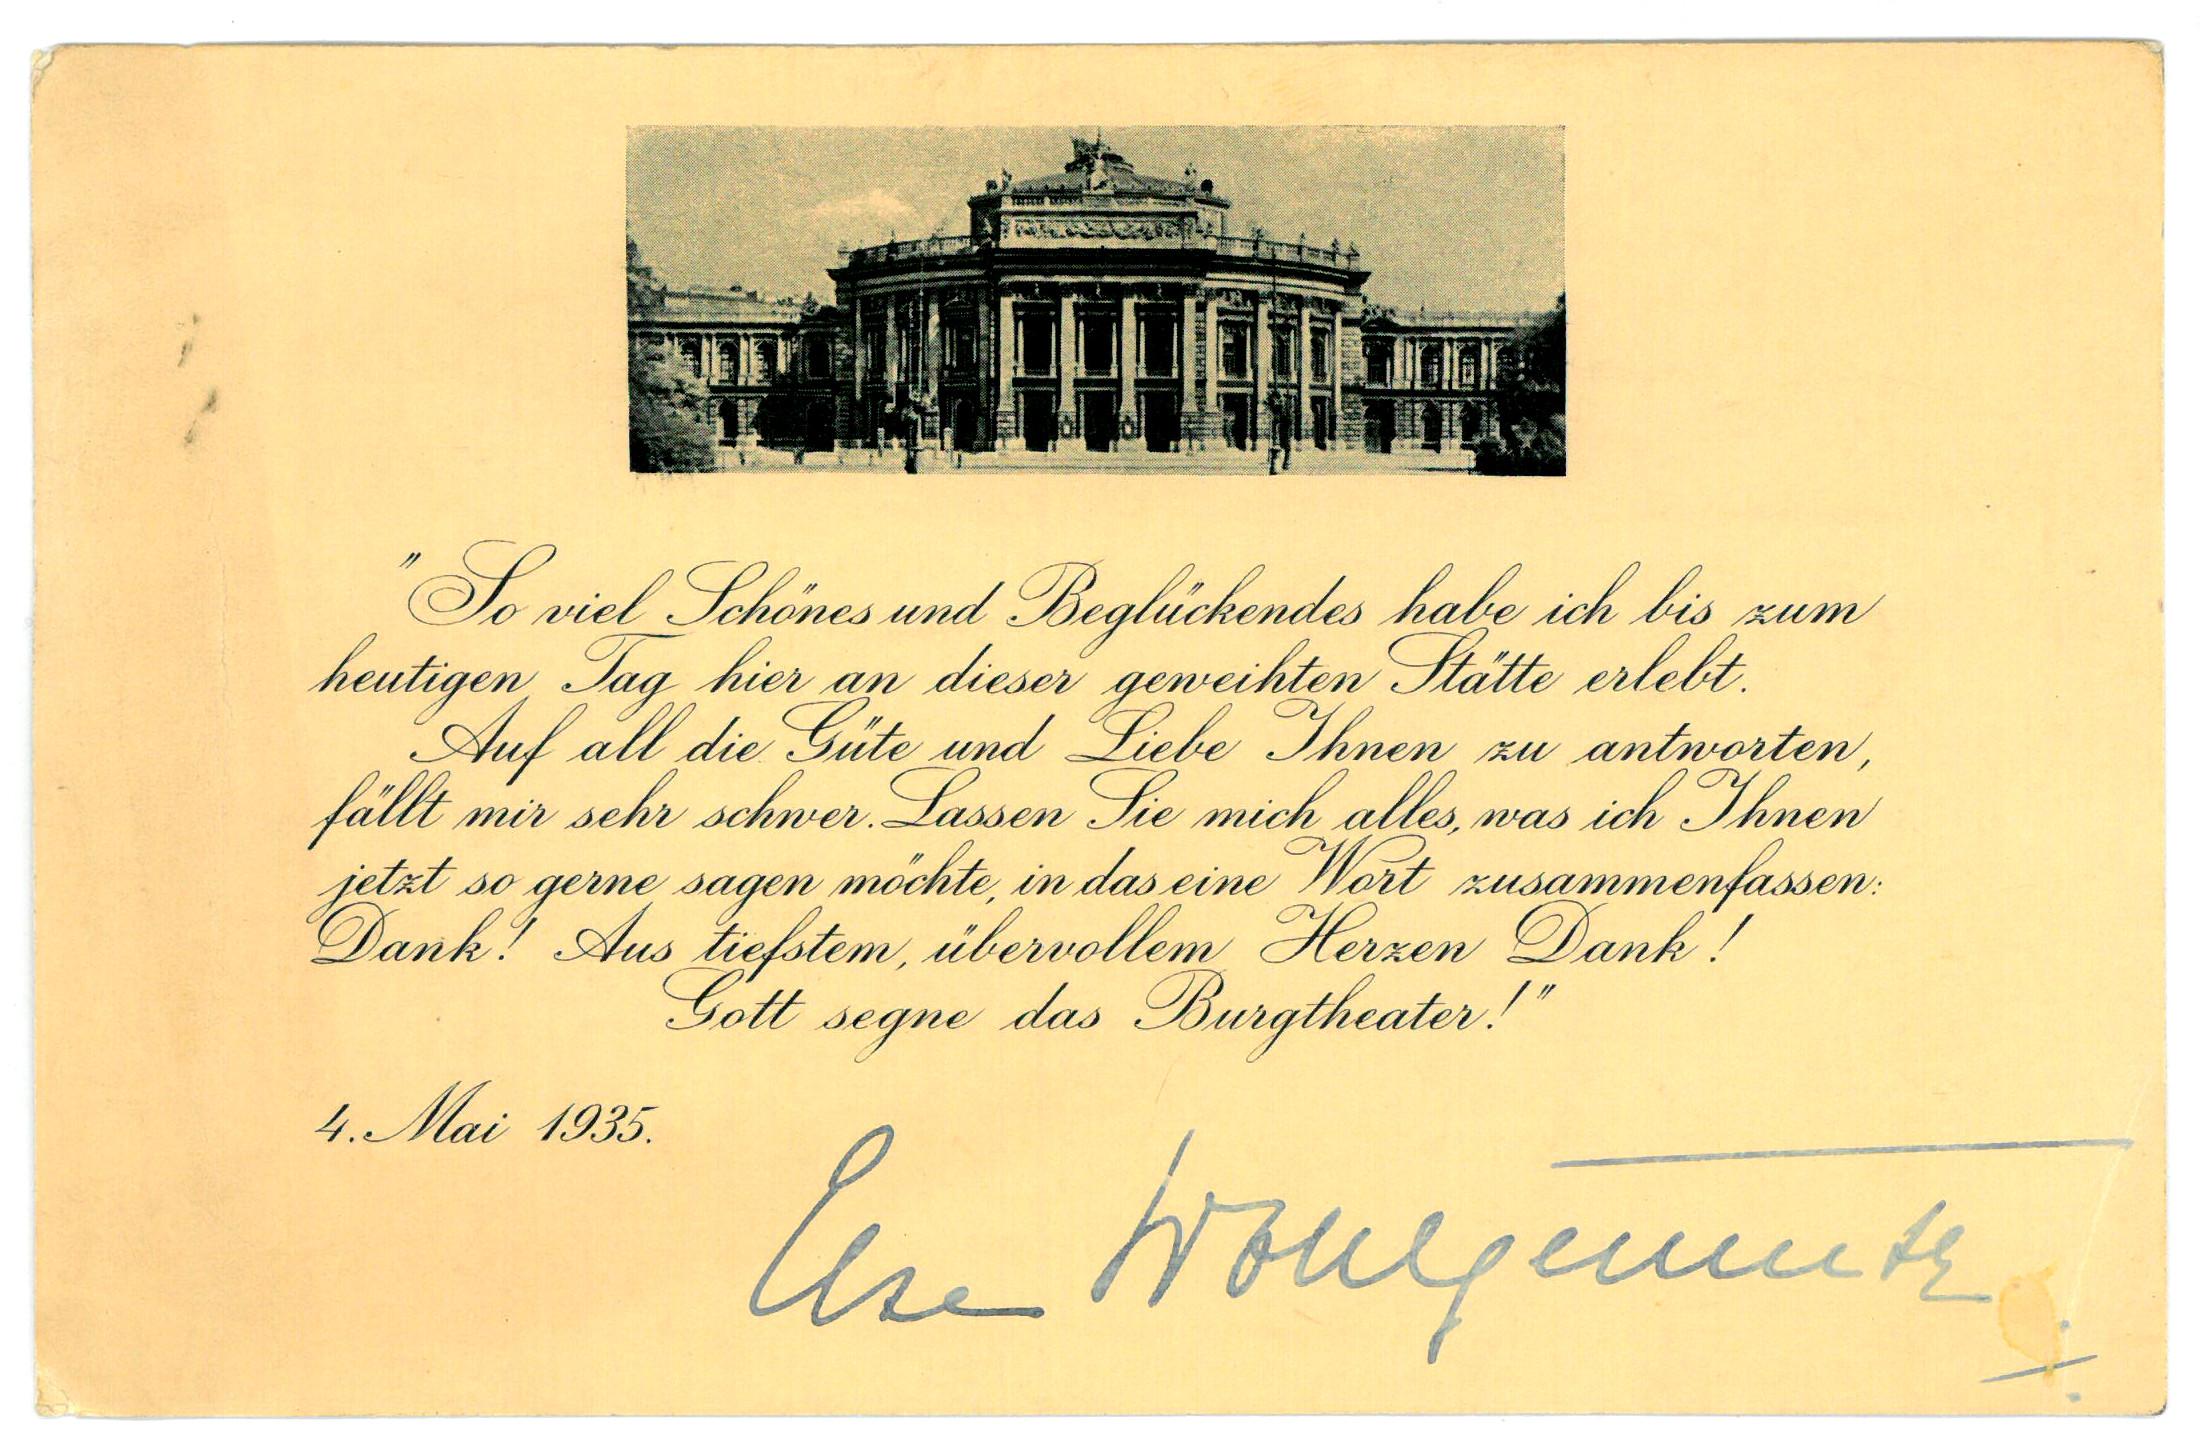 "So viel Schönes und Beglückendes habe ich bis zum
heutigen Tag hier an dieser geweihten Stätte erlebt.
Auf all die Güte und Liebe Ihnen zu antworten,
fällt mir sehr schwer. Lassen Sie mich alles, was ich Ihnen
jetzt so gerne sagen möchte, in das eine Wort zusammenfassen:
Dank! Aus tiefstem, übervollem Herzen Dank!
Gott segne das Burgtheater!"
4. Mai 1935.
Else Wohlgemuth